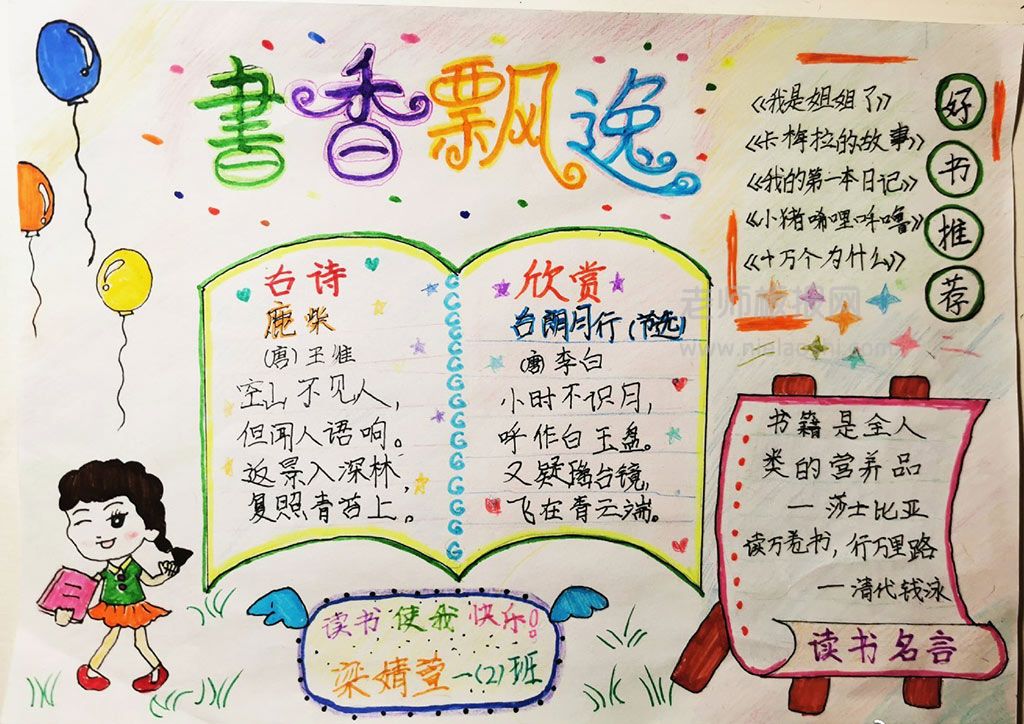 書香飘逸
《我是姐姐了》
《卡梅拉的故事》
《我的第一本日记》
《小猪唏哩呼噜》
《十万个为什么》
好书推荐
古诗
鹿柴
(唐)王维
空山不见人,
但闻人语响。
返景入深林,
复照青苔上。
欣赏
古朗月行(节选)
(唐)李白
小时不识月,
呼作白玉盘。
又疑瑶台镜,
飞在青云端。
老师板报网
书籍是全人
类的营养品
—莎士比亚
读万卷书,行万里路
—清代钱泳
读书名言
读书使我快乐!
梁婧萱一(2)班